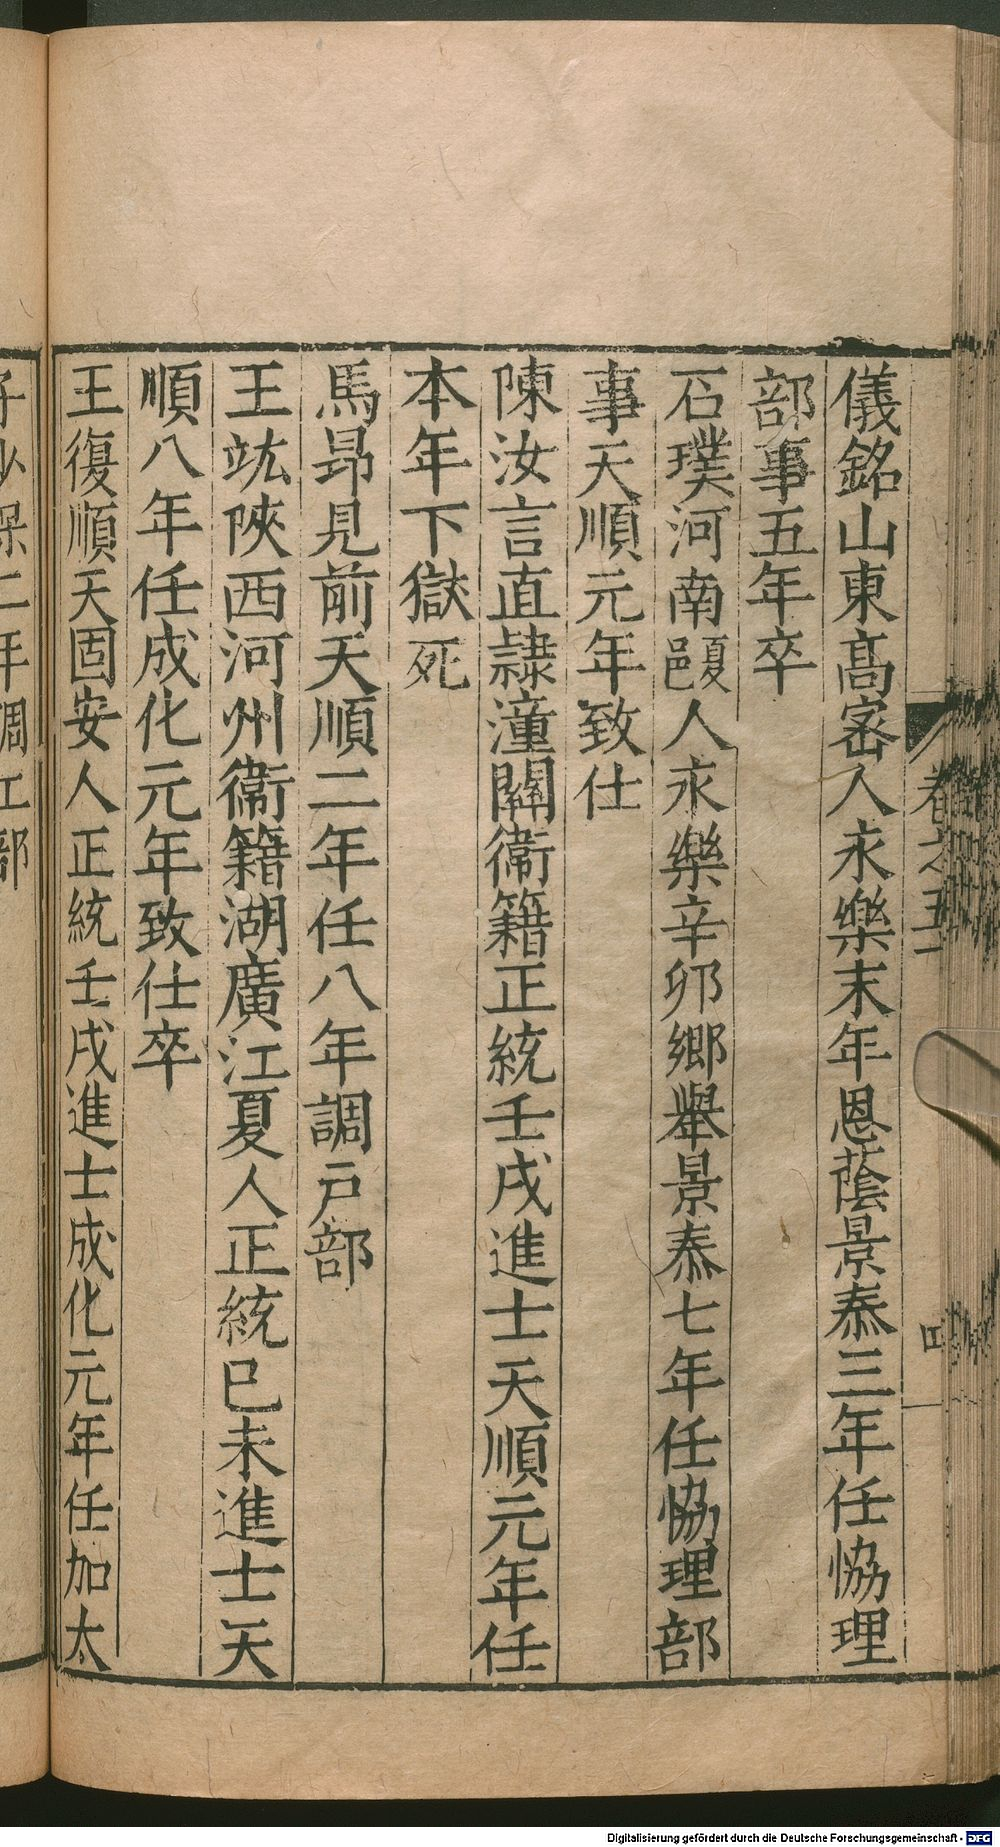 卷之五
四
儀銘山東高密人永樂末年恩蔭景泰三年任恊理
部事五年卒
石璞河南臨人永樂辛卯鄉舉景泰七年任恊理部
事天順元年致仕
陳汝言直隸潼關衛籍正統壬戌進士天順元年任
本年下獄死
馬昂見前天順二年任八年調戶部
王竑陝西河州衛籍湖廣江夏人正統己未進士天
順八年任成化元年致仕卒
王復順天固安人正統壬戌進士成化元年任加太
子少保二年調工部
Digitalisierung gefördert durch die Deutsche Forschungsgemeinschaft - DFG